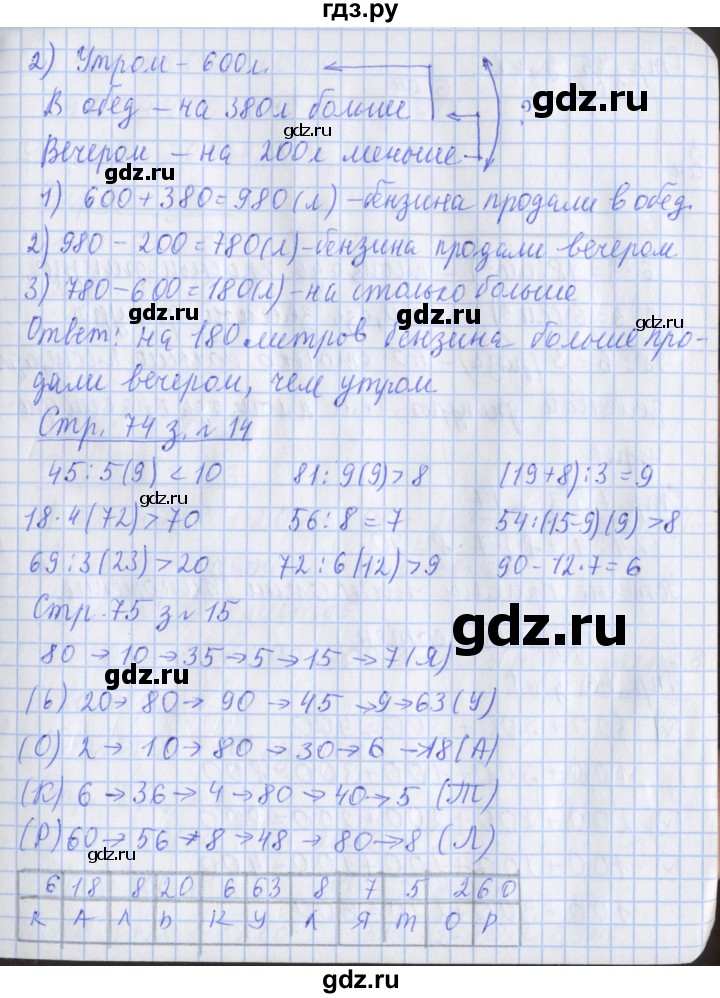 гдз.ру
2) Утром - 600л.
В обед - на 380л больше ?
gdz.ru
gdz.ru
Вечером - на 200л меньше
gdz.ru
1) 600+380=980(л)-бензина продали в обед.
2) 980-200=780(л)-бензина продали вечером
gdz.ru
3) 780-600=180(л)-на столько больше
gdz.ru
gdz.ru
Ответ: на 180 литров бензина больше про-
дали вечером, чем утром.
Стр. 74 з. №14
45:5(9)<10 81:9(9)>8 (19+8):3=9
gdz.ru
gdz.ru
18·4(72)>70 56:8=7 54:(15-9)(9)>8
69:3(23)>20 72:6(12)>9 90-12·7=6
gdz.ru
Стр. 75 з №15
gdz.ru
80→10→35→5→15→7(Я)
gdz.ru
(Ь) 20→80→90→45→9→63(У)
(О) 2→10→80→30→6→18(А)
gdz.ru
(К) 6→36→4→80→40→5 (Т)
(Р) 60→56→8→48→80→8 (Л)
gdz.ru
6 18 8 20 6 63 8 7 5 2 60
К А Л Ь К У Л Я Т О Р
gdz.ru
gdz.ru